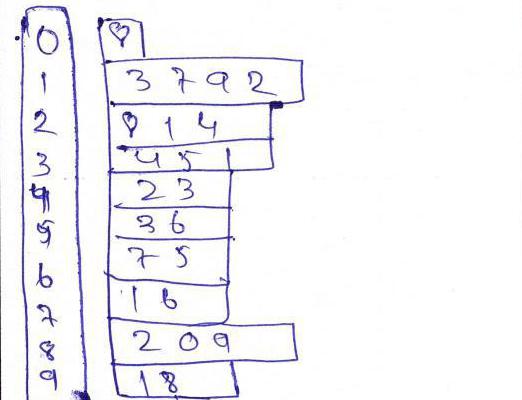 0 8
1 3 7 9 2
2 8 1 4
3 4 5 1
4 2 3
5 3 6
6 7 5
7 1 6
8 2 0 9
9 1 8